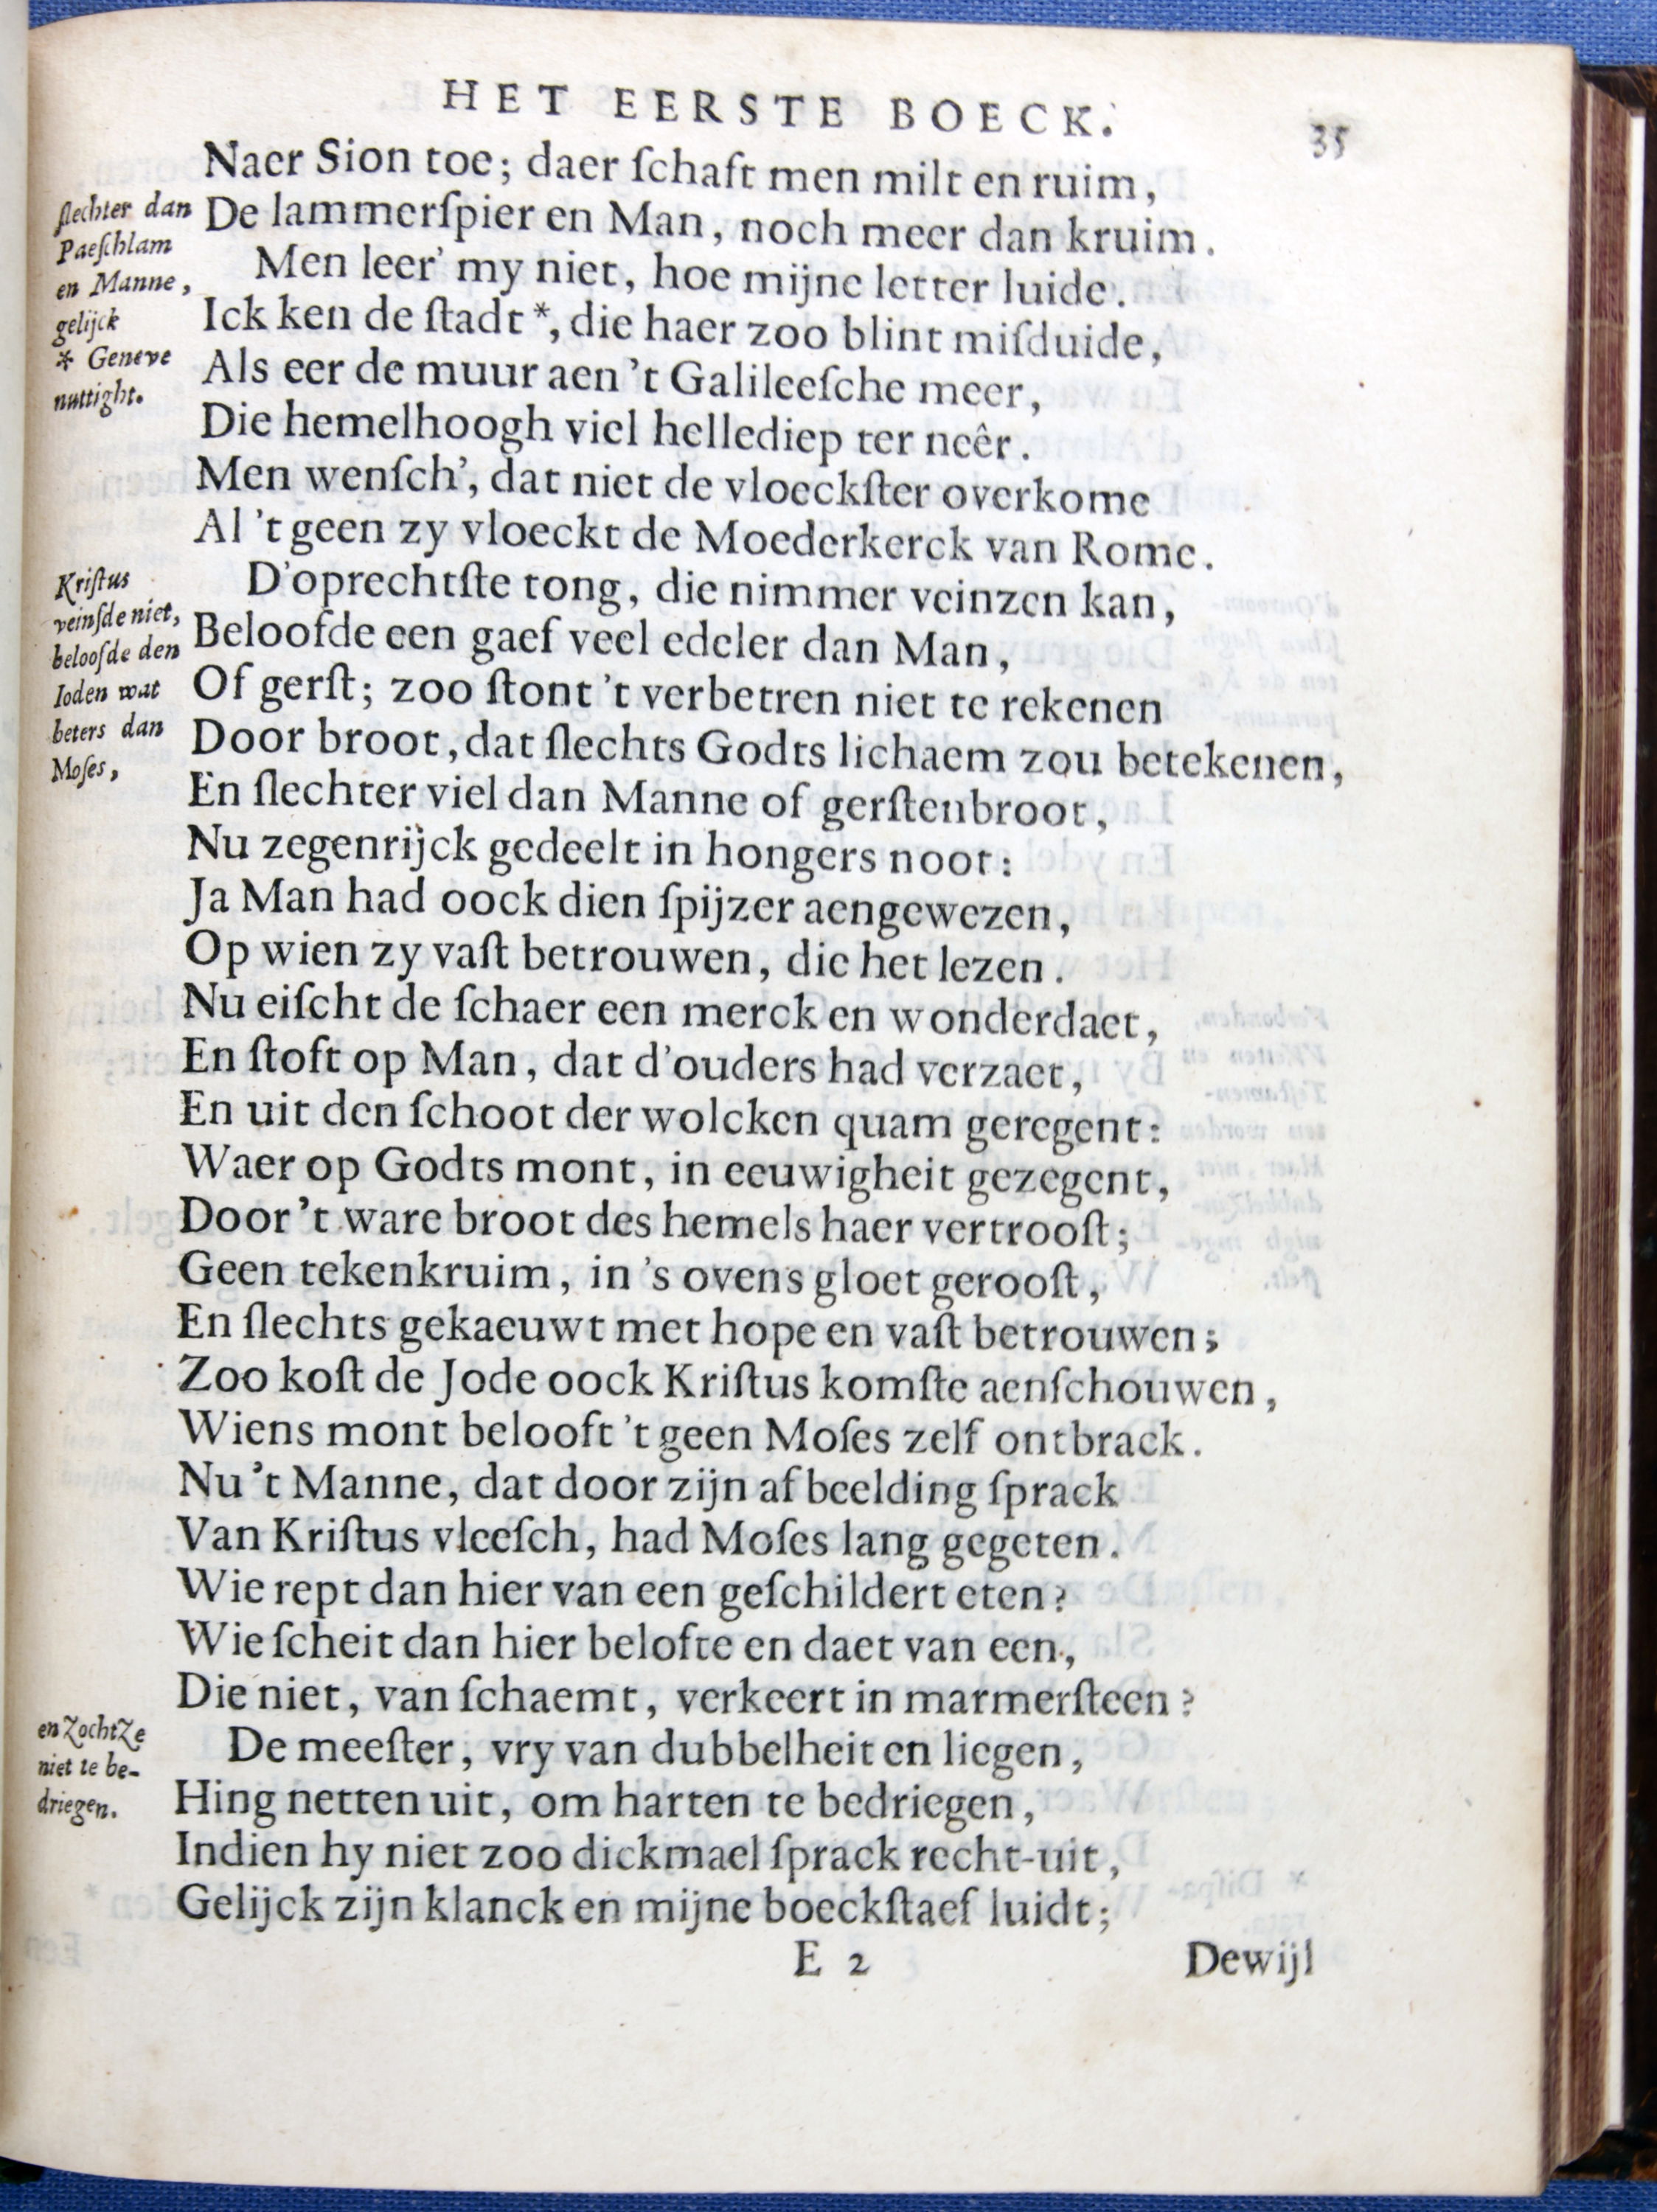 HET EERSTE BOECK.
35
Naer Sion toe; daer ſchaft men milt en ruim,
De lammerſpier en Man, noch meer dan kruim.
Men leer' my niet, hoe mijne letter luide.
Ick ken de ſtadt *, die haer zoo blint miſduide,
Als eer de muur aen 't Galileeſche meer,
Die hemelhoogh viel hellediep ter neêr.
Men wenſch', dat niet de vloeckſter overkome
Al 't geen zy vloeckt de Moederkerck van Rome.
D'oprechtſte tong, die nimmer veinzen kan,
Beloofde een gaef veel edeler dan Man,
Of gerſt; zoo ſtont 't verbetren niet te rekenen
Door broot, dat ſlechts Godts lichaem zou betekenen,
En ſlechter viel dan Manne of gerſtenbroot,
Nu zegenrijck gedeelt in hongers noot:
Ja Man had oock dien ſpijzer aengewezen,
Op wien zy vaſt betrouwen, die het lezen.
Nu eiſcht de ſchaer een merck en wonderdaet,
En ſtoft op Man, dat d'ouders had verzaet,
En uit den ſchoot der wolcken quam geregent:
Waer op Godts mont, in eeuwigheit gezegent,
Door 't ware broot des hemels haer vertrooſt;
Geen tekenkruim, in 's ovens gloet gerooſt,
En ſlechts gekaeuwt met hope en vaſt betrouwen;
Zoo koſt de Jode oock Kriſtus komſte aenſchouwen,
Wiens mont belooft 't geen Moſes zelf ontbrack.
Nu 't Manne, dat door zijn afbeelding ſprack
Van Kriſtus vleeſch, had Moſes lang gegeten.
Wie rept dan hier van een geſchildert eten?
Wie ſcheit dan hier belofte en daet van een,
Die niet, van ſchaemt, verkeert in marmerſteen?
De meeſter, vry van dubbelheit en liegen,
Hing netten uit, om harten te bedriegen,
Indien hy niet zoo dickmael ſprack recht-uit,
Gelijck zijn klanck en mijne boeckſtaef luidt;
E 2
Dewijl
ſlechter dan
Paeſchlam
en Manne,
gelijck
* Geneve
nuttight.
Kriſtus
veinſde niet,
beloofde den
Ioden wat
beters dan
Moſes,
en zochtze
niet te be-
driegen.